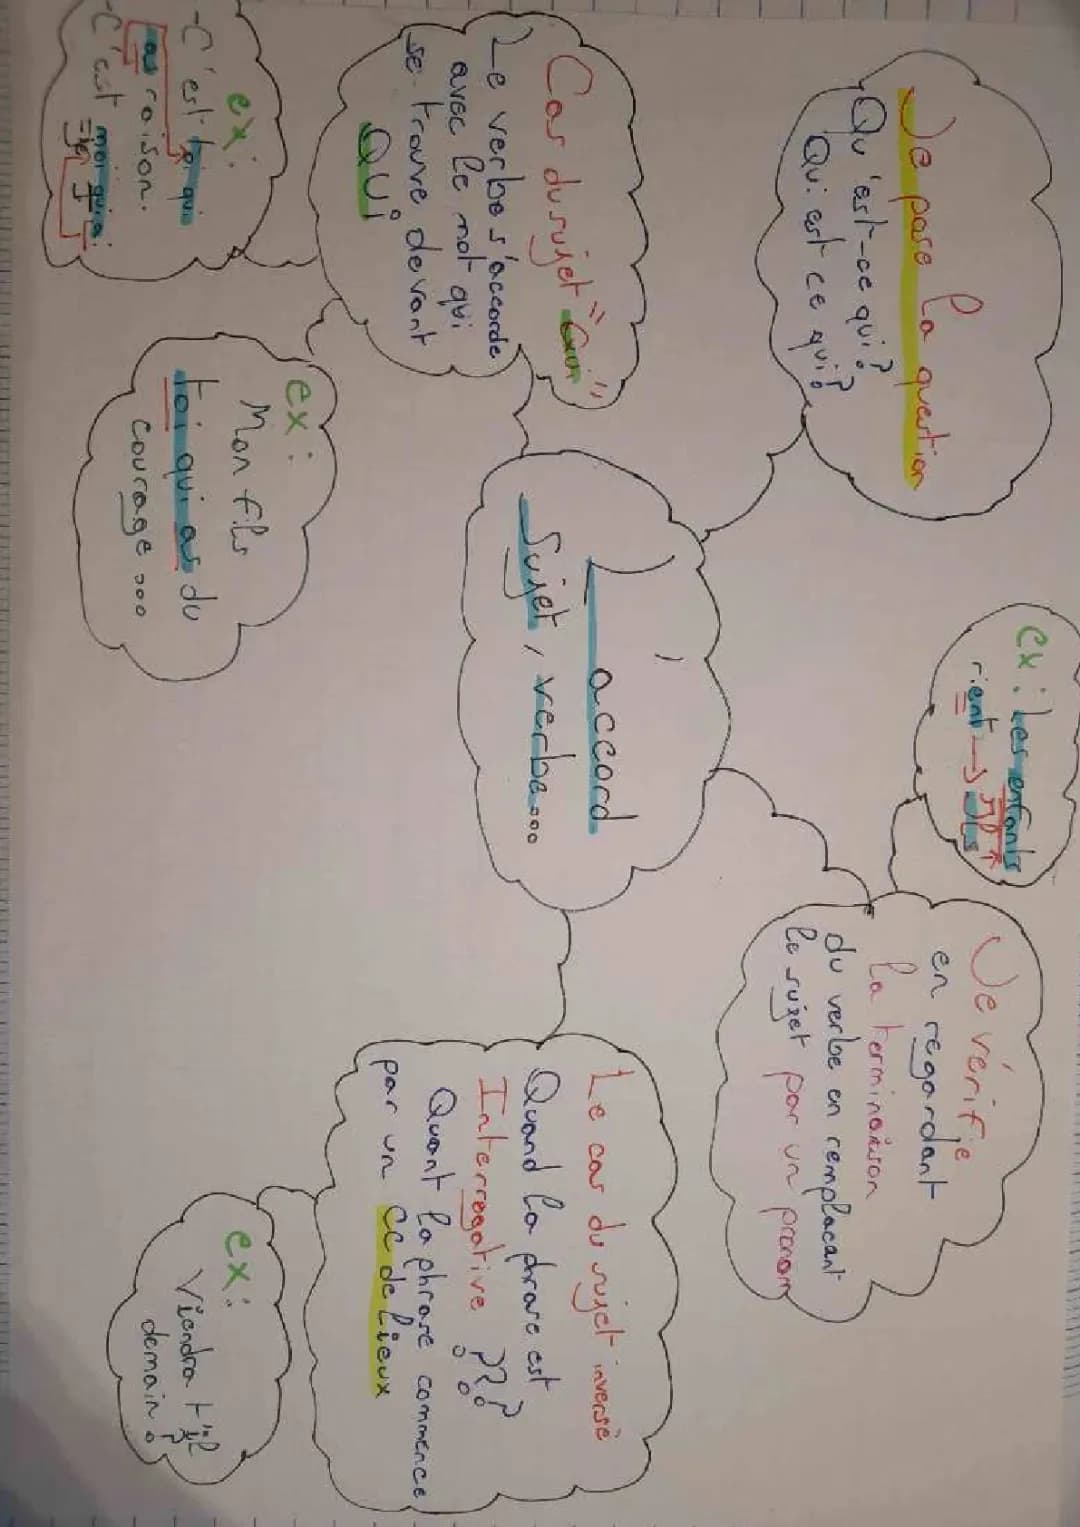 L'accord
Sujet, verbe...
Je pose la question
Qu'est-ce qui?
Qui est ce qui?
ex: Les enfants
rient → ils
Je vérifie
en regardant
la terminaison
du verbe en remplacant
le sujet par un pronom
Cas du sujet "
Le verbe s'accorde
avec le mot qui
se trouve devant
QUI
ex:
-C'est toi qui
as raison.
-C'est moi qui ai
ex:
Mon fils
toi qui as du
courage...
Le cas du sujet inversé
Quand la phrase est
Interrogative ???
Quant la phrase commence
par un CC de Lieux
ex:
Viendra t'il
demain?